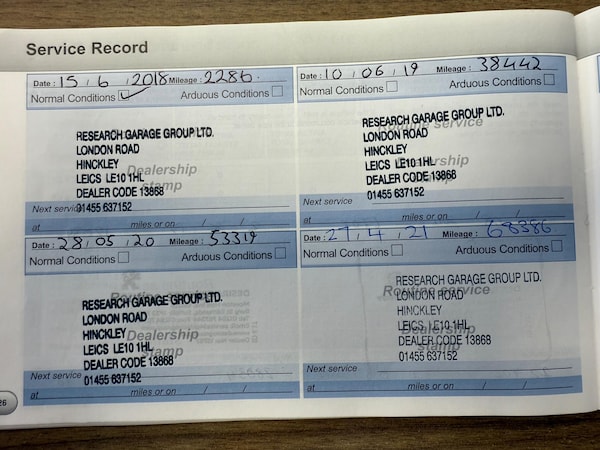 Service Record
Date : 15 , 6 , 2018 Mileage : 2286.
Normal Conditions Arduous Conditions
RESEARCH GARAGE GROUP LTD.
LONDON ROAD
HINCKLEY
LEICS LE10 1HL
DEALER CODE 13868
01455 637152
Dealership
stamp
Next service
at miles or on / /
Date : 10 , 06 , 19 Mileage : 38442
Normal Conditions Arduous Conditions
Routine service
RESEARCH GARAGE GROUP LTD.
LONDON ROAD
HINCKLEY
LEICS LE10 1HL
DEALER CODE 13868
01455 637152
Dealership
stamp
Next service
at miles or on / /
Date : 28 , 05 , 20 Mileage : 53319
Normal Conditions Arduous Conditions
Routine service
RESEARCH GARAGE GROUP LTD.
LONDON ROAD
HINCKLEY
LEICS LE10 1HL
DEALER CODE 13868
01455 637152
Dealership
stamp
Next service
at miles or on / /
Date : 27 , 4 , 21 Mileage : 68386
Normal Conditions Arduous Conditions
Routine service
RESEARCH GARAGE GROUP LTD.
LONDON ROAD
HINCKLEY
LEICS LE10 1HL
DEALER CODE 13868
01455 637152
Dealership
stamp
Next service
at miles or on / /
26